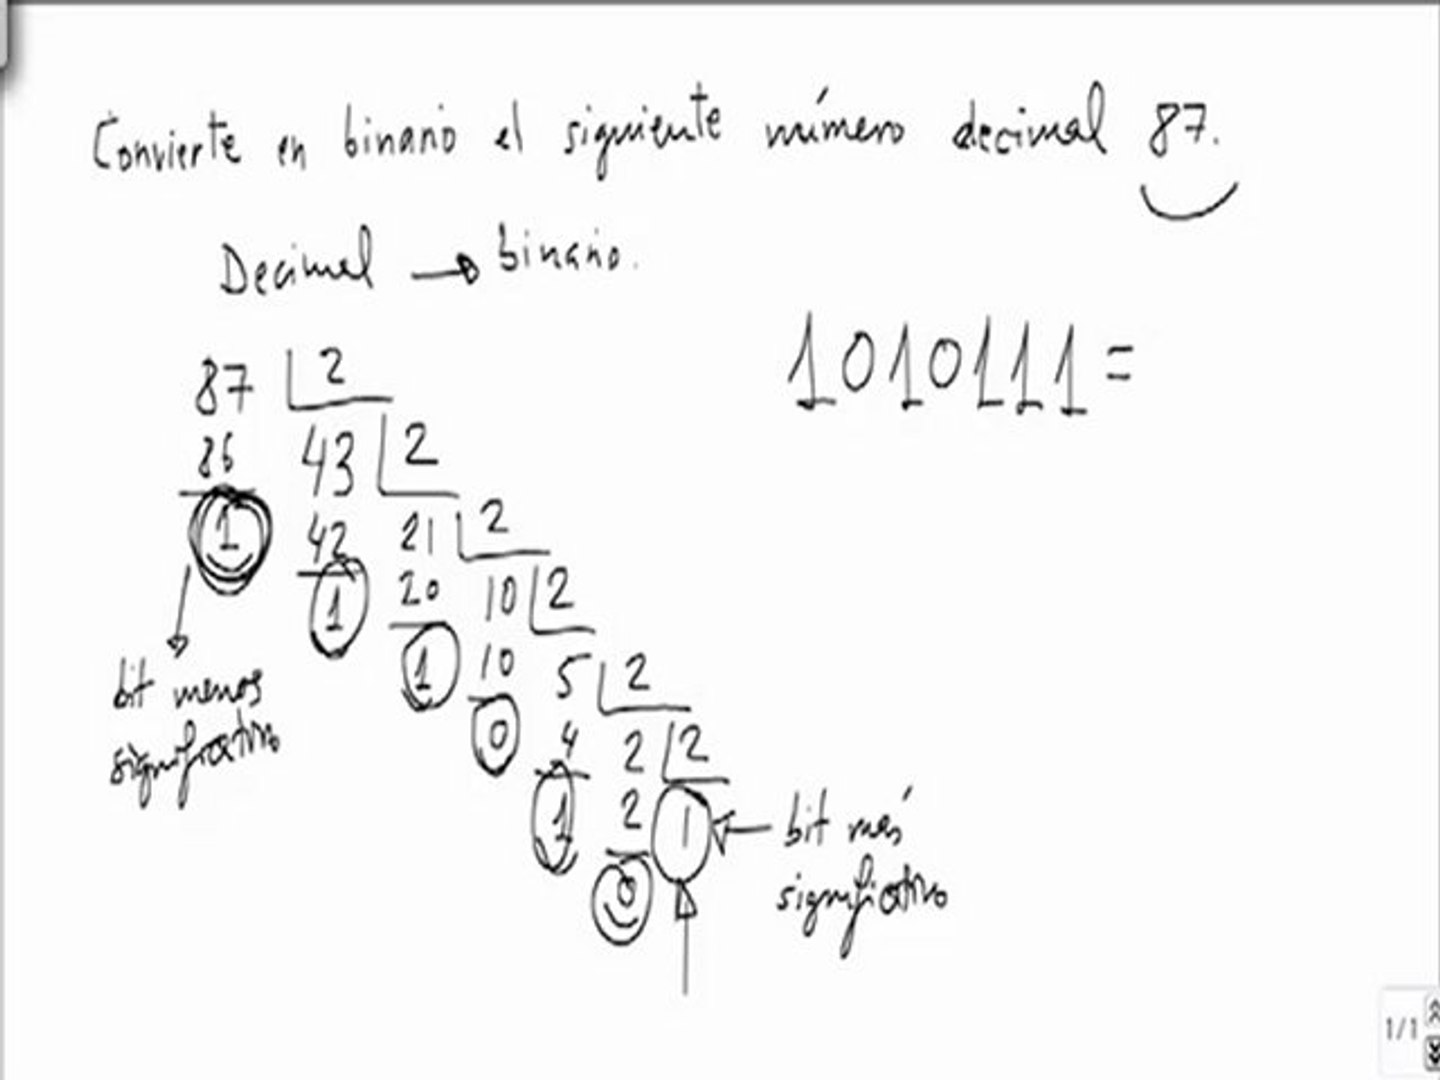 Convierte en binario el siguiente número decimal 87.
Decimal → binario.
1010111=
87 2
86 43 2
1 42 21 2
1 20 10 2
1 10 5 2
0 4 2 2
1 2 1
0
bit menos
significativo
bit más
significativo
1/1